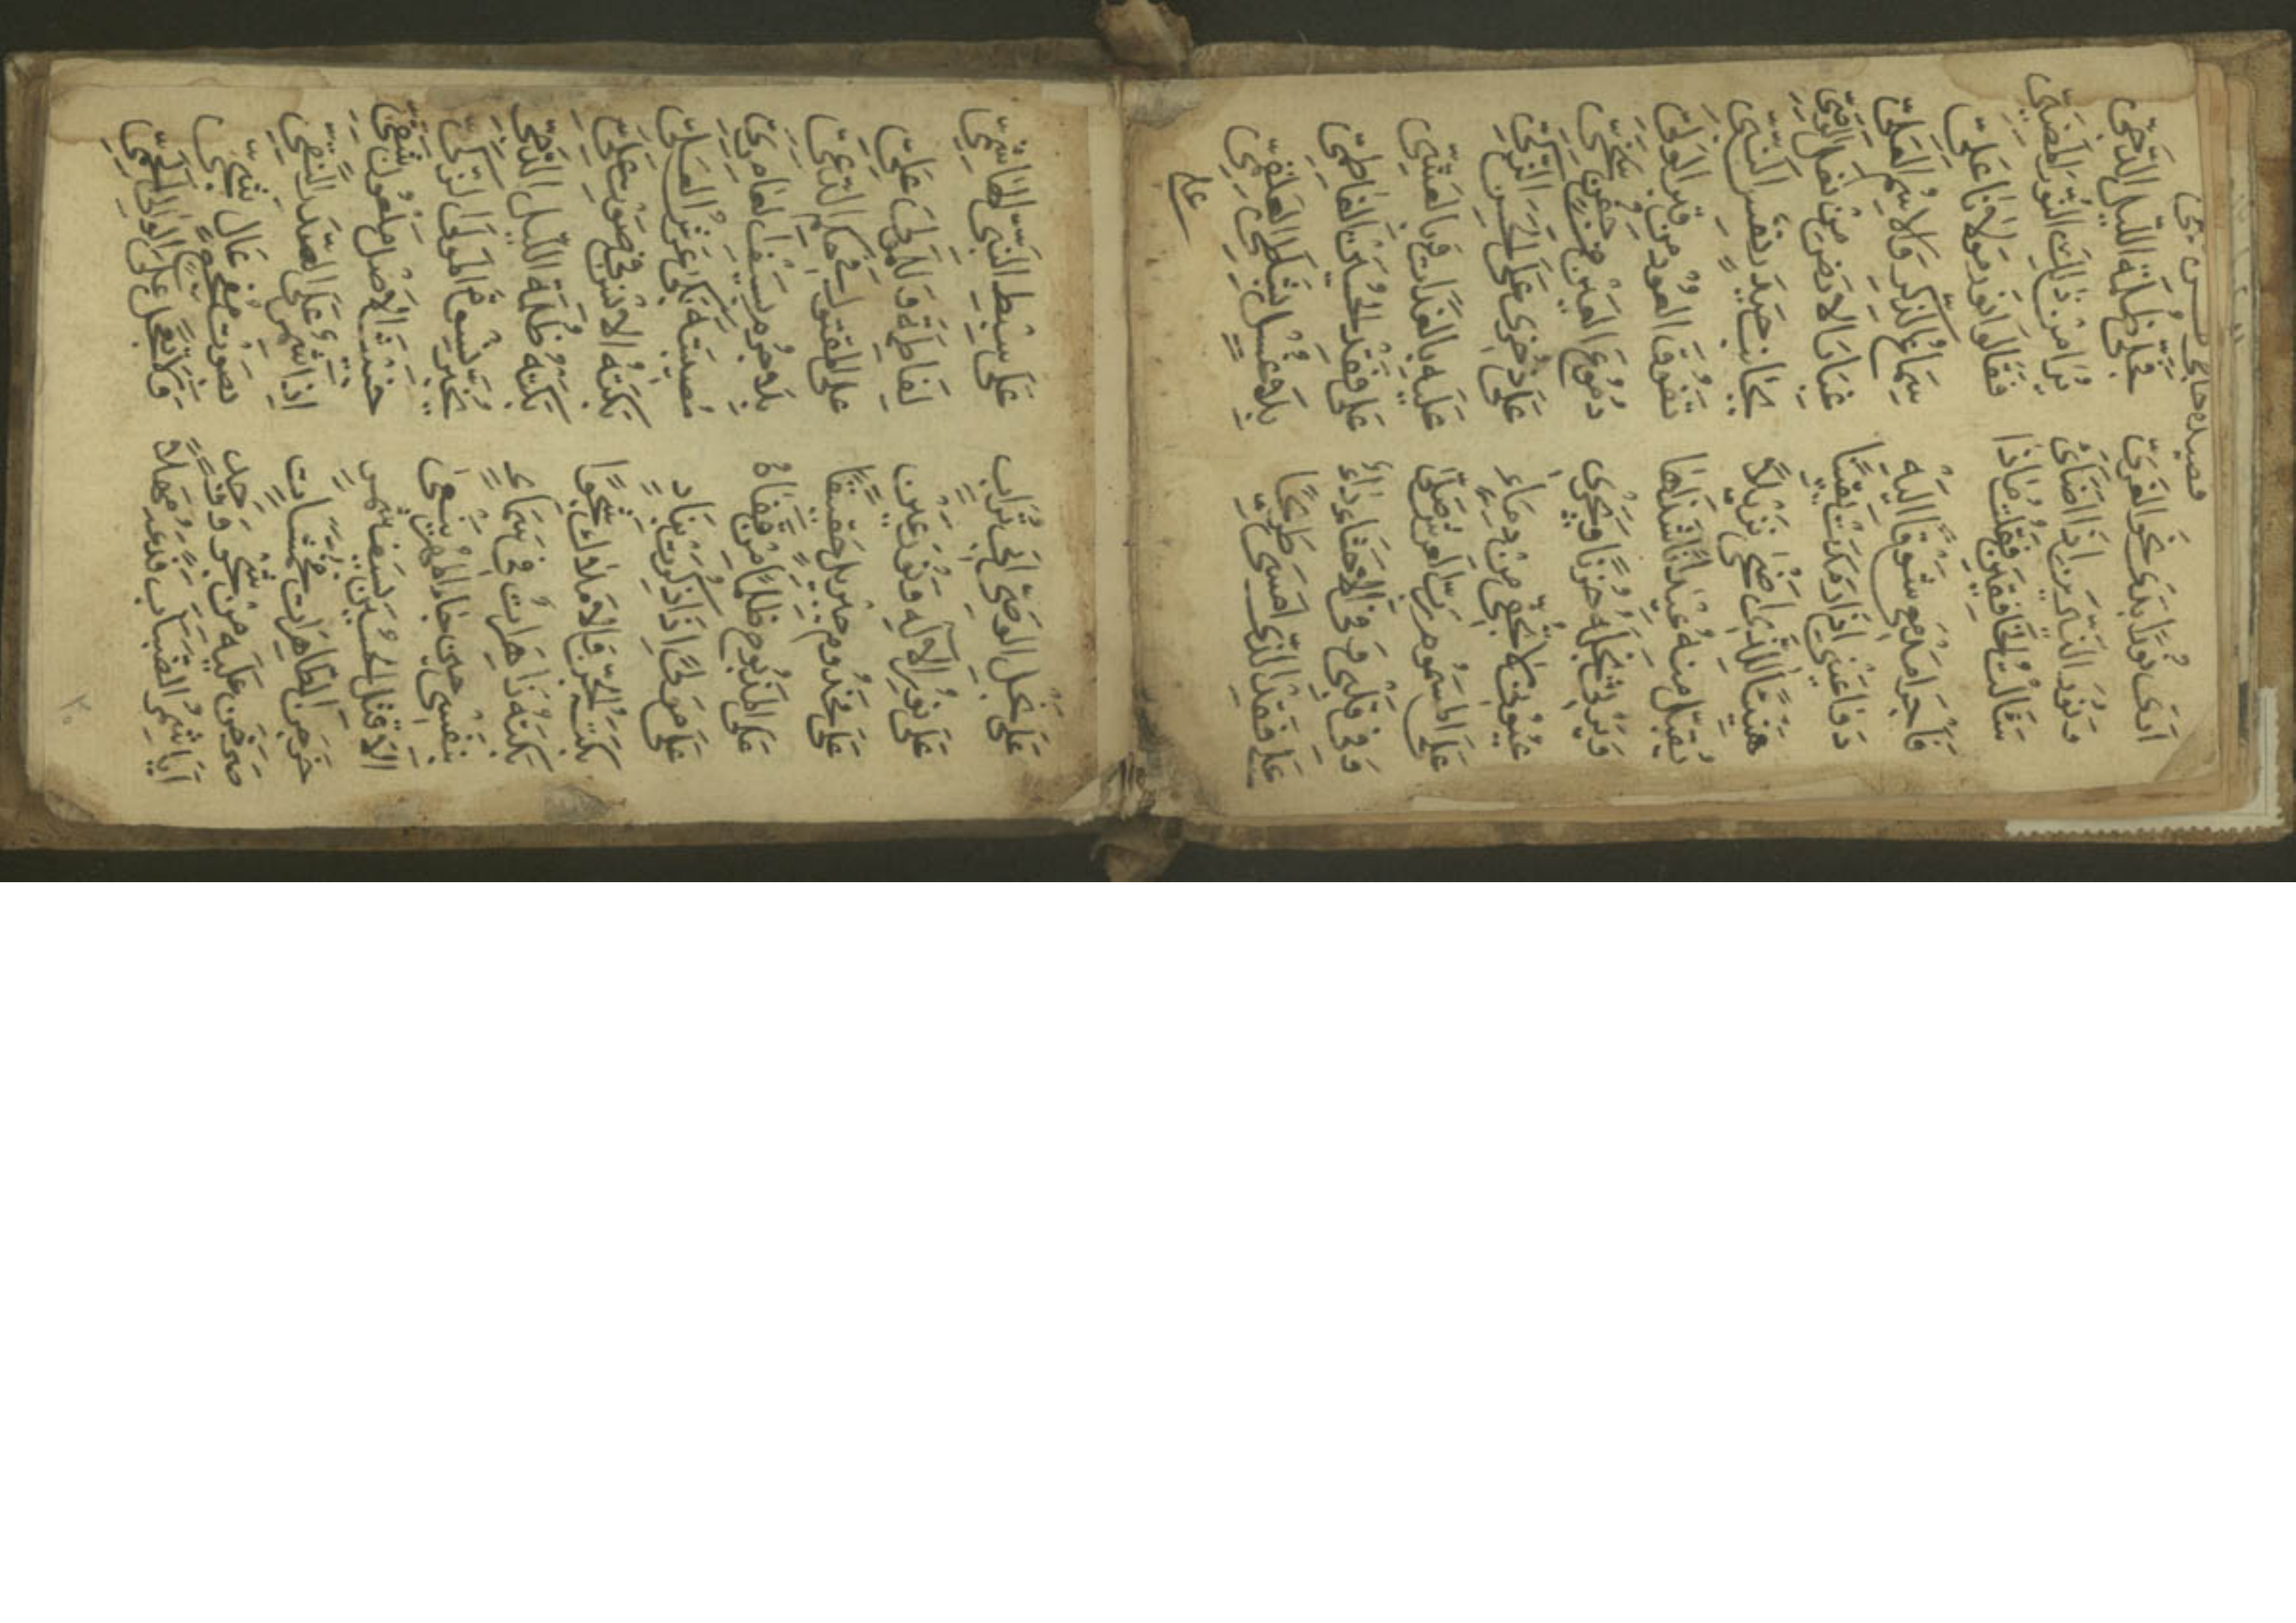 قصيده حاجي حسن
أَرَى نُورًا بَدَى نَحْوَ الغَرِيّ فَجَلّى ظُلْمَةَ اللَّيْلِ الدَّجِيّ
وَنُورُ النَّيِّرَيْنِ اِذَا اضَائَ يُرَا مِنْ ذٰلِكَ النُّورِ المُضِئِ
سَئَالْتُ الخَافِقَيْنِ فَقُلْتُ مَاذَا فَقَالُوا نُورُ مَوْلَانَا عَلِيّ
فَأَجْرَا مَدْمَعِي شَوْقًا اِلَيْهِ سِمَاعُ الذِّكْرِ وَالاِسْمِ العَلِيّ
دَوَا عَيْنِي اِذَا رَمَدَتْ يَقِيْنًا غُبَارُ الاَرْضِ مِنْ نَعْلِ الرَّضِيّ
هَنِيْئًا لِلَّذِي اَضْحَى نَزِيْلًا بِجَانِبِ حَيْدَرٍ نَفْسِ النَّبِيّ
يُقَبِّلُ مِنْهُ شَذَاهَا يَفُوقُ العُودَ مِنْ قَبْرِ الوَلِيّ
وَيَرْثِي نَجْلَهُ حُزْنًا وَيُجْرِي دُمُوعَ العَيْنِ مِنْ جَفْنٍ
عُيُونِي لَا تَجُفِّي مِنْ دِمَاءٍ عَلَى دُخْرِي عَلَى الحَسَنِ الزَّكِيّ
عَلَى المَسْمُومِ رَبُّ العَرْشِ صَلَّى عَلَيْهِ بِالغَدَاتِ وَبِالعَشِيّ
وَفِي قَلْبِي وَفِي الاَحْشَاءِ دَاءٌ عَلَى فَقْدِ الحُسَيْنِ الفَاطِمِيّ
عَلَى فَقْدِ الَّذِي اَمْسَى طَرِيْحًا بِلَا غُسْلٍ بِشَطِّ العَلْقَمِيّ
على
عَلَى نَجْلِ الوَصِيّ اَبِي تُرَابٍ عَلَى سِبْطِ النَّبِيّ الهَاشِمِيّ
عَلَى نُورِ الاِلٰهِ وَنُورِ عَيْنٍ لِفَاطِمَةٍ وَلِلْمَوْلَى عَلِيّ
عَلَى مَخْدُومِ جِبْرِيلٍ حَقِيْقًا عَلَى المَقْتُولِ فِي حُكْمِ الدَّعِيّ
عَلَى المَذْبُوحِ ظُلْمًا مِنْ قَفَاهُ بِلَا جُرْمٍ بِسَيْفِ العَامِرِيّ
عَلَى مَوْلًى اِذَا ذُكِرَتْ بِنَادٍ مُصِيْبَتُهُ بَكَى عَرْشُ العَلِيّ
بَكَتْهُ الجِنُّ وَالاَمْلَاكُ شَجْوًا بَكَتْهُ الاِنْسُ فِي صَوْتٍ عَلِيّ
بَكَتْهُ زَاهِرَاتٌ فِي سَمَاءٍ بَكَتْهُ ظُلْمَةُ اللَّيْلِ الدَّجِيّ
بِنَفْسِي حِيْنَ جَاءَ المُهْرُ يَنْعَى نِسْوَةَ المَوْلَى الزَّكِيّ
اَلَا قُتِلَ الحُسَيْنُ بِسَيْفِ شِمْرٍ خَبِيْثِ الاَصْلِ مَلْعُونٍ شَقِيّ
خَرَجْنَ الطَّاهِرَاتُ مُخَمَّشَاتٍ اِذَا شِمْرٌ عَلَى الصَّدْرِ النَّقِيّ
صَرَخْنَ عَلَيْهِ مِنْ شَجْوٍ وَوَجْدٍ بِصَوْتٍ مُفْجِعٍ عَالٍ شَجِيّ
اَيَا شِمْرُ الضَّبَابِ فَدَعْهُ مَهْلًا وَلَا تَعْجَلْ عَلَى